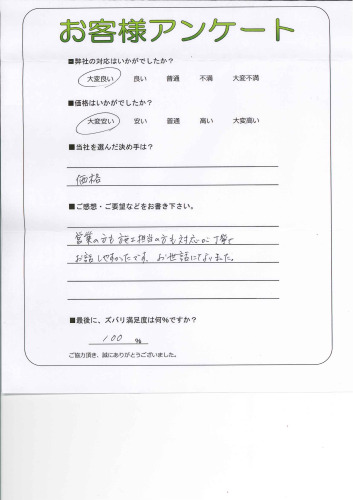 お客様アンケート
■弊社の対応はいかがでしたか？
大変良い 良い 普通 不満 大変不満
■価格はいかがでしたか？
大変安い 安い 普通 高い 大変高い
■当社を選んだ決め手は？
価格
■ご感想・ご要望などをお書き下さい。
営業の方も施工担当の方も対応が丁寧で
お話しやすかったです。お世話になりました。
■最後に、ズバリ満足度は何%ですか？
100 %
ご協力頂き、誠にありがとうございました。